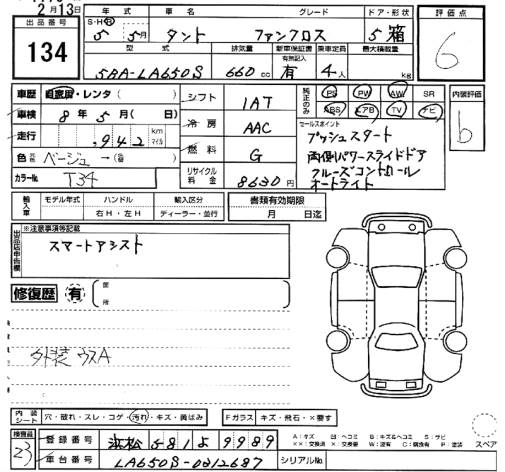 2月13日
出品番号 年式 車名 グレード ドア・形状 評価点
134
S・H・R 5年 5月 タント ファンクロス 5 箱 6
型式 排気量 新車保証書 乗車定員 最大積載量
有無記入
5BA-LA650S 660cc 有 4人 kg
車歴 自家用・レンタ ( ) シフト IAT 純正のみ PS PW AW SR 内装評価
ABS エアB TV ナビ
車検 8年5月( 日) 冷房 AAC b
セールスポイント
走行 ,942 km マイル
プッシュスタート
両側パワースライドドア
クルーズコントロール
オートライト
色 ベージュ→( ) 燃料 G
カラーNo. T34 リサイクル料金 8630円
輸入車 モデル年式 ハンドル 輸入区分 書類有効期限
右H・左H ディーラー・並行 月 日迄
出品店申告欄 ※注意事項等記載
スマートアシスト
修復歴 有 箇所
外装 ウスA
内装シート 穴・破れ・スレ・コゲ・汚れ・キズ・黄ばみ Fガラス キズ・飛石・×要す
検査員 23 登録番号 浜松 581 よ 9989
A:キズ U:凹ミ B:キズ&ヘコミ S:サビ
××:交換済 X:交換要 W:波 C:腐食 P:塗装 スペア
車台番号 LA650S-0312687 シリアルNo.